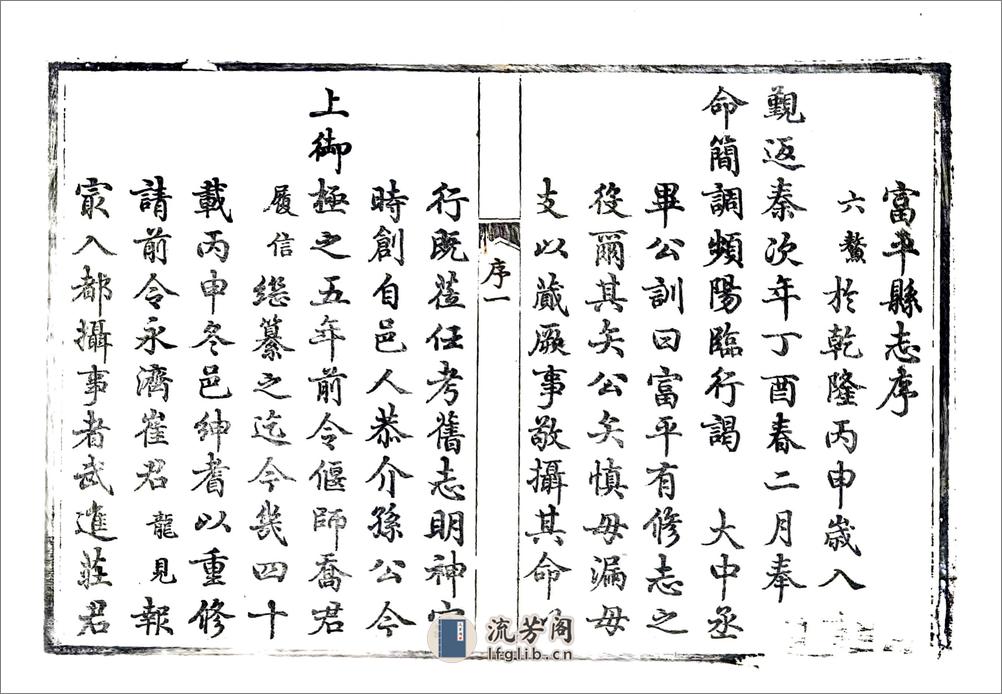 富平縣志序
六鰲於乾隆丙申歲入
覲返秦次年丁酉春二月奉
命簡調頻陽臨行謁 大中丞
畢公訓曰富平有修志之
役爾其矢公矢慎毋漏毋
支以蕆厥事敬攝其命
序一
行既蒞任考舊志明神
時創自邑人恭介孫公今
上御極之五年前令偃師喬君
履信 總纂之迄今幾四十
載丙申冬邑紳耆以重修
請前令永濟崔君 龍見 報
最入都攝事者武進莊君
流芳阁
lfglib.cn